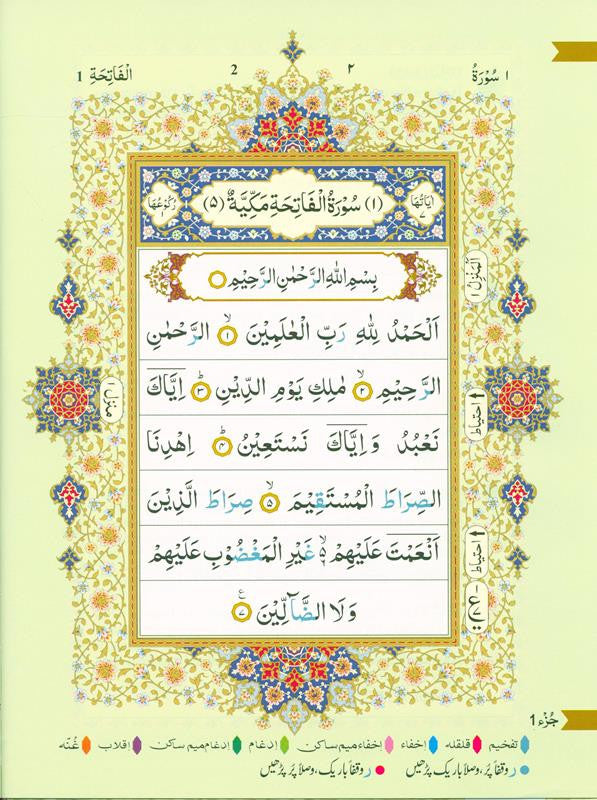 سُوْرَةُ ١
٢
2
اَلْفَاتِحَةِ 1
اٰيَاتُهَا ٧
(١) سُوْرَةُ الْفَاتِحَةِ مَكِّيَّةٌ (٥)
رُكُوْعُهَا ١
بِسْمِ اللّٰهِ الرَّحْمٰنِ الرَّحِيْمِ
اَلْحَمْدُ لِلّٰهِ رَبِّ الْعٰلَمِيْنَ ۙ‏ ١ الرَّحْمٰنِ
الرَّحِيْمِ ۙ‏ ٢ مٰلِكِ يَوْمِ الدِّيْنِ ؕ‏ ٣ اِيَّاكَ
نَعْبُدُ وَاِيَّاكَ نَسْتَعِيْنُ ؕ‏ ٤ اِهْدِنَا
الصِّرَاطَ الْمُسْتَقِيْمَ ۙ‏ ٥ صِرَاطَ الَّذِيْنَ
اَنْعَمْتَ عَلَيْهِمْ ۙ ٦ غَيْرِ الْمَغْضُوْبِ عَلَيْهِمْ
وَلَا الضَّآلِّيْنَ ٧ ع
اَلْمَنْزِلُ ١
منزل ١
احتیاط
احتیاط
جُزْء 1
تفخیم قلقله اخفاء اخفاء میم ساکن ادغام ادغام میم ساکن اقلاب غُنّه
ر وقفاً پُر، وصلاً باریک پڑھیں ر وقفاً باریک، وصلاً پُر پڑھیں